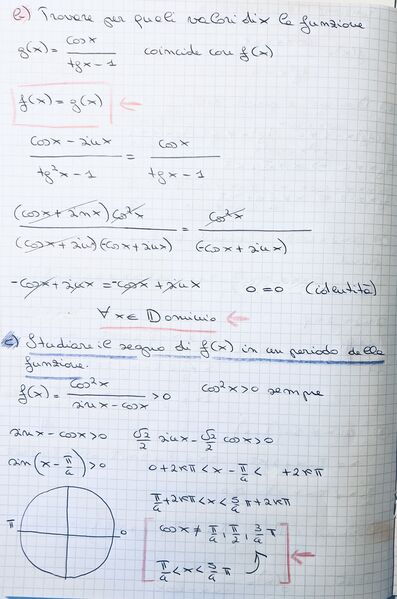 b) Trovare per quali valori di x la funzione
g(x) = cosx / (tgx - 1) coincide con f(x)
f(x) = g(x) ←
(cosx - sinx) / (tg²x - 1) = cosx / (tgx - 1)
(cosx + sinx) cos²x / (cosx + sinx)(-cosx + sinx) = cos²x / (-cosx + sinx)
-cosx + sinx = -cosx + sinx 0 = 0 (identità)
∀ x ∈ Dominio ←
c) Studiare il segno di f(x) in un periodo della
funzione.
f(x) = cos²x / (sinx - cosx) > 0 cos²x > 0 sempre
sinx - cosx > 0 √2/2 sinx - √2/2 cosx > 0
sin(x - π/4) > 0 0 + 2kπ < x - π/4 < + 2kπ
π/4 + 2kπ < x < 5/4 π + 2kπ
π 0
cosx ≠ π/4, π/2, 3/4 π
π/4 < x < 5/4 π ←